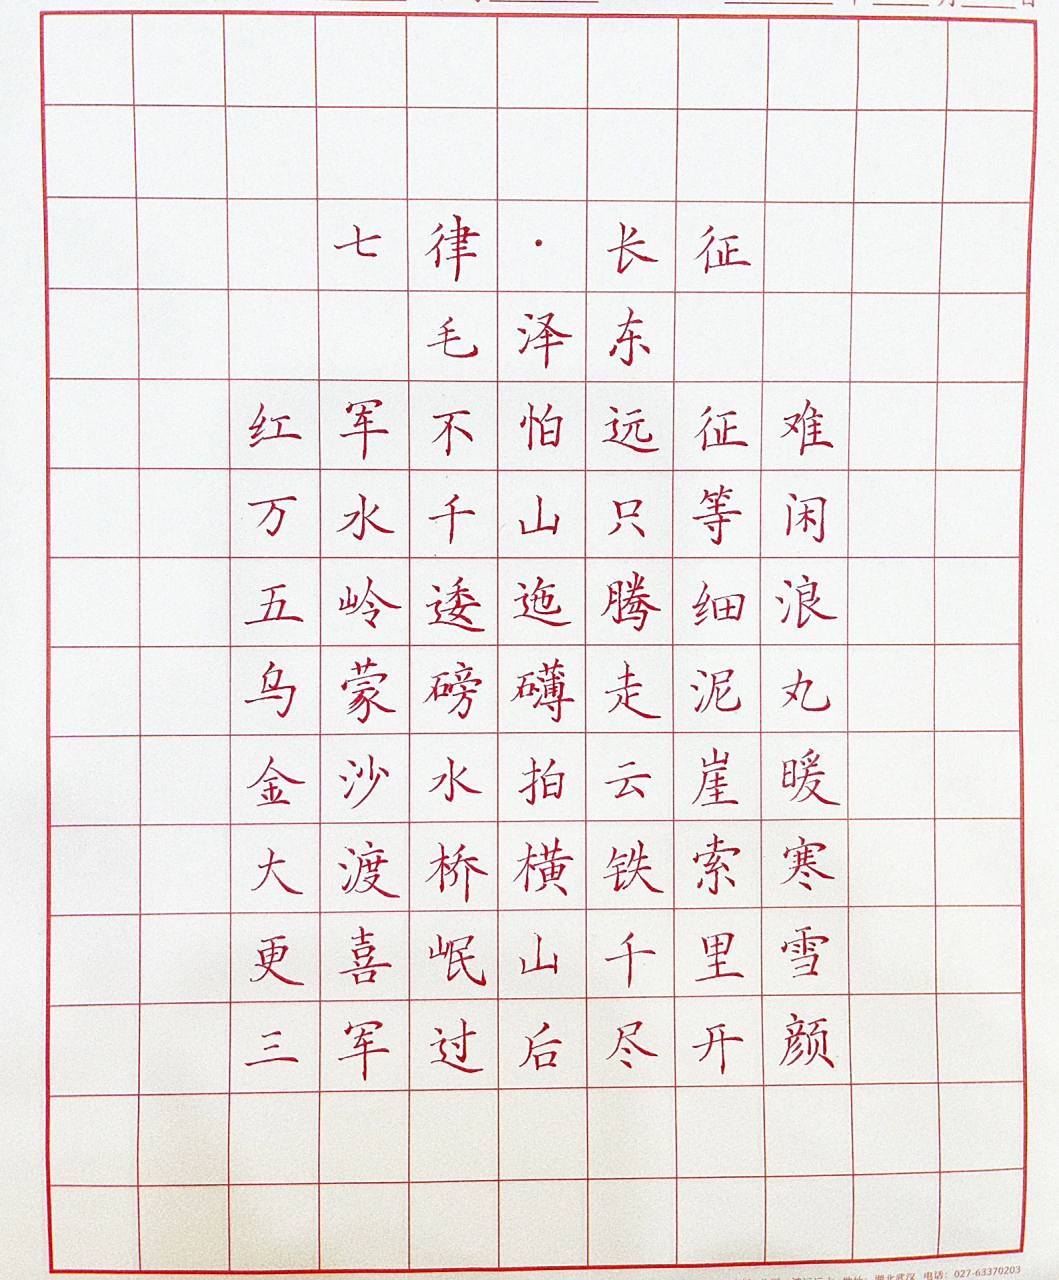 七律·长征
毛泽东
红军不怕远征难
万水千山只等闲
五岭逶迤腾细浪
乌蒙磅礴走泥丸
金沙水拍云崖暖
大渡桥横铁索寒
更喜岷山千里雪
三军过后尽开颜
湖北武汉 电话：027-63370203